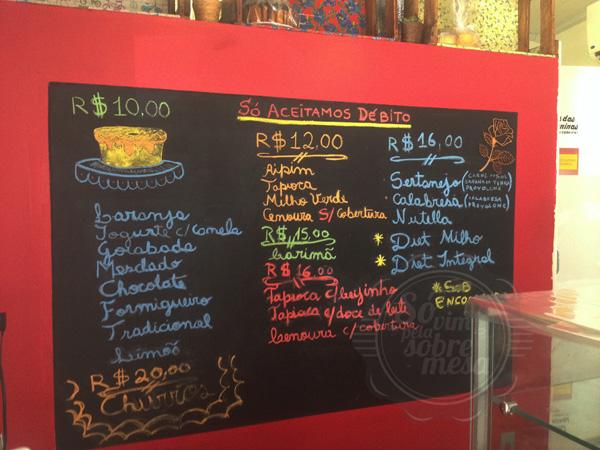 R$10,00
Laranja
Iogurte c/ canela
Goiabada
Mesclado
Chocolate
Formigueiro
Tradicional
Limão
R$20,00
Churros
Só Aceitamos Débito
R$12,00
Aipim
Tapioca
Milho Verde
Cenoura S/ Cobertura
R$15,00
Carimã
R$16,00
Tapioca c/ beijinho
Tapioca c/ doce de leite
Cenoura c/ cobertura
R$16,00
Sertanejo (Carne do Sol
Provolone)
Calabresa (Calabresa
Provolone)
Nutella
* Diet Milho
* Diet Integral
* Sob
Enco
Só
vim
pela
sobre
mesa